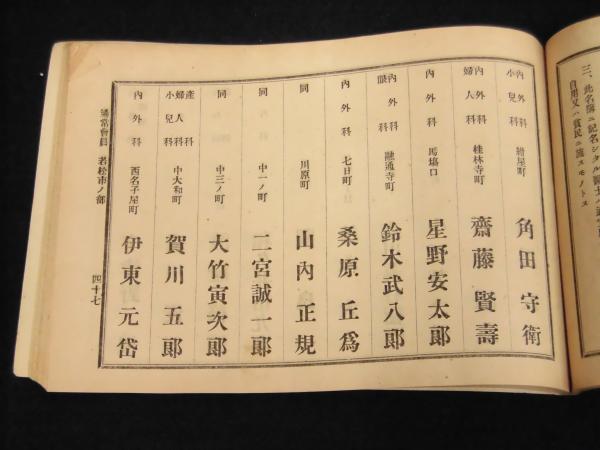 三、此名簿ニ記名シタル
自用又ハ貧民ニ施スモノトス
内外科
小児科
紺屋町
角田守衛
内外科
婦人科
桂林寺町
齋藤賢壽
内外科
馬場口
星野安太郎
内外科
眼科
融通寺町
鈴木武八郎
内外科
七日町
桑原丘爲
同
川原町
山內正規
同
中一ノ町
二宮誠一郎
同
中三ノ町
大竹寅次郎
產科
婦人科
小兒科
中大和町
賀川五郎
內外科
西名子屋町
伊東元岱
通常會員 若松市ノ部
四十七